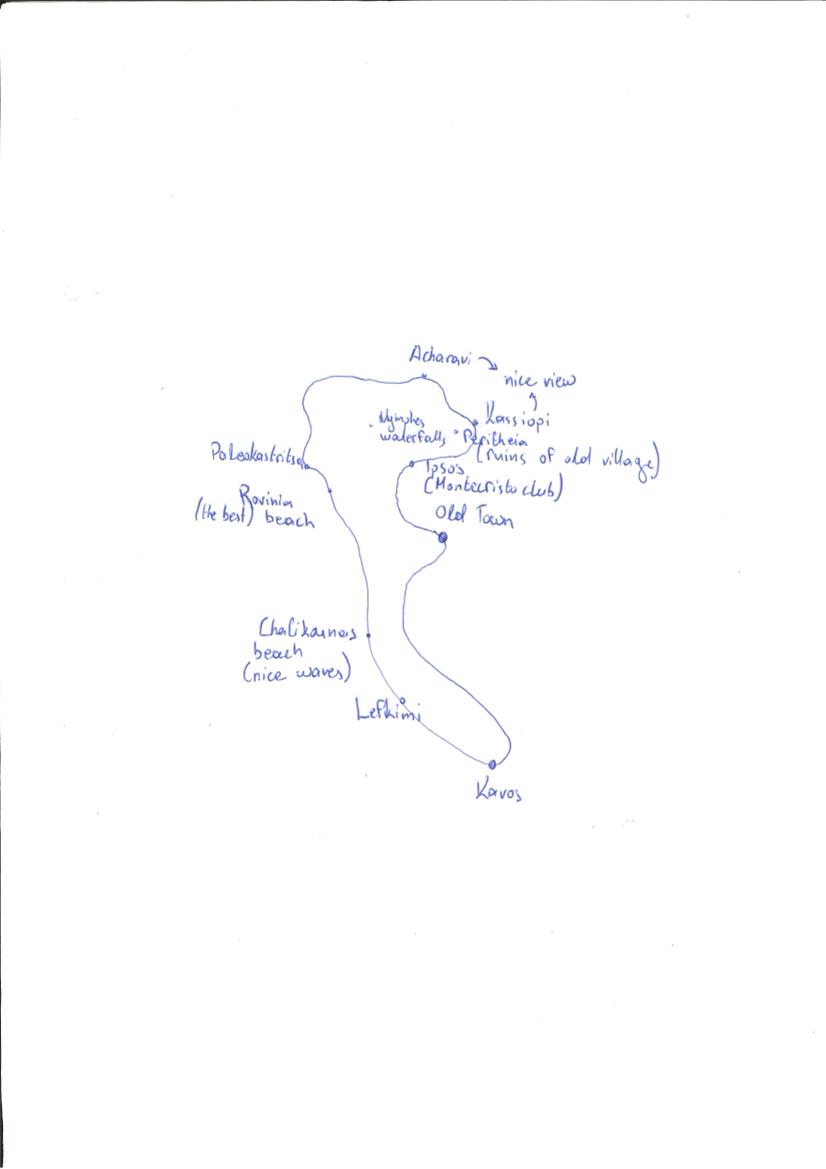 Acharavi
nice view
Kassiopi
Nymphes
waterfalls
Peritheia
(ruins of old village)
Paleokastritsa
Ipsos
(Montecristo club)
Rovinia
(the best) beach
Old Town
Chalikounas
beach
(nice waves)
Lefkimi
Kavos